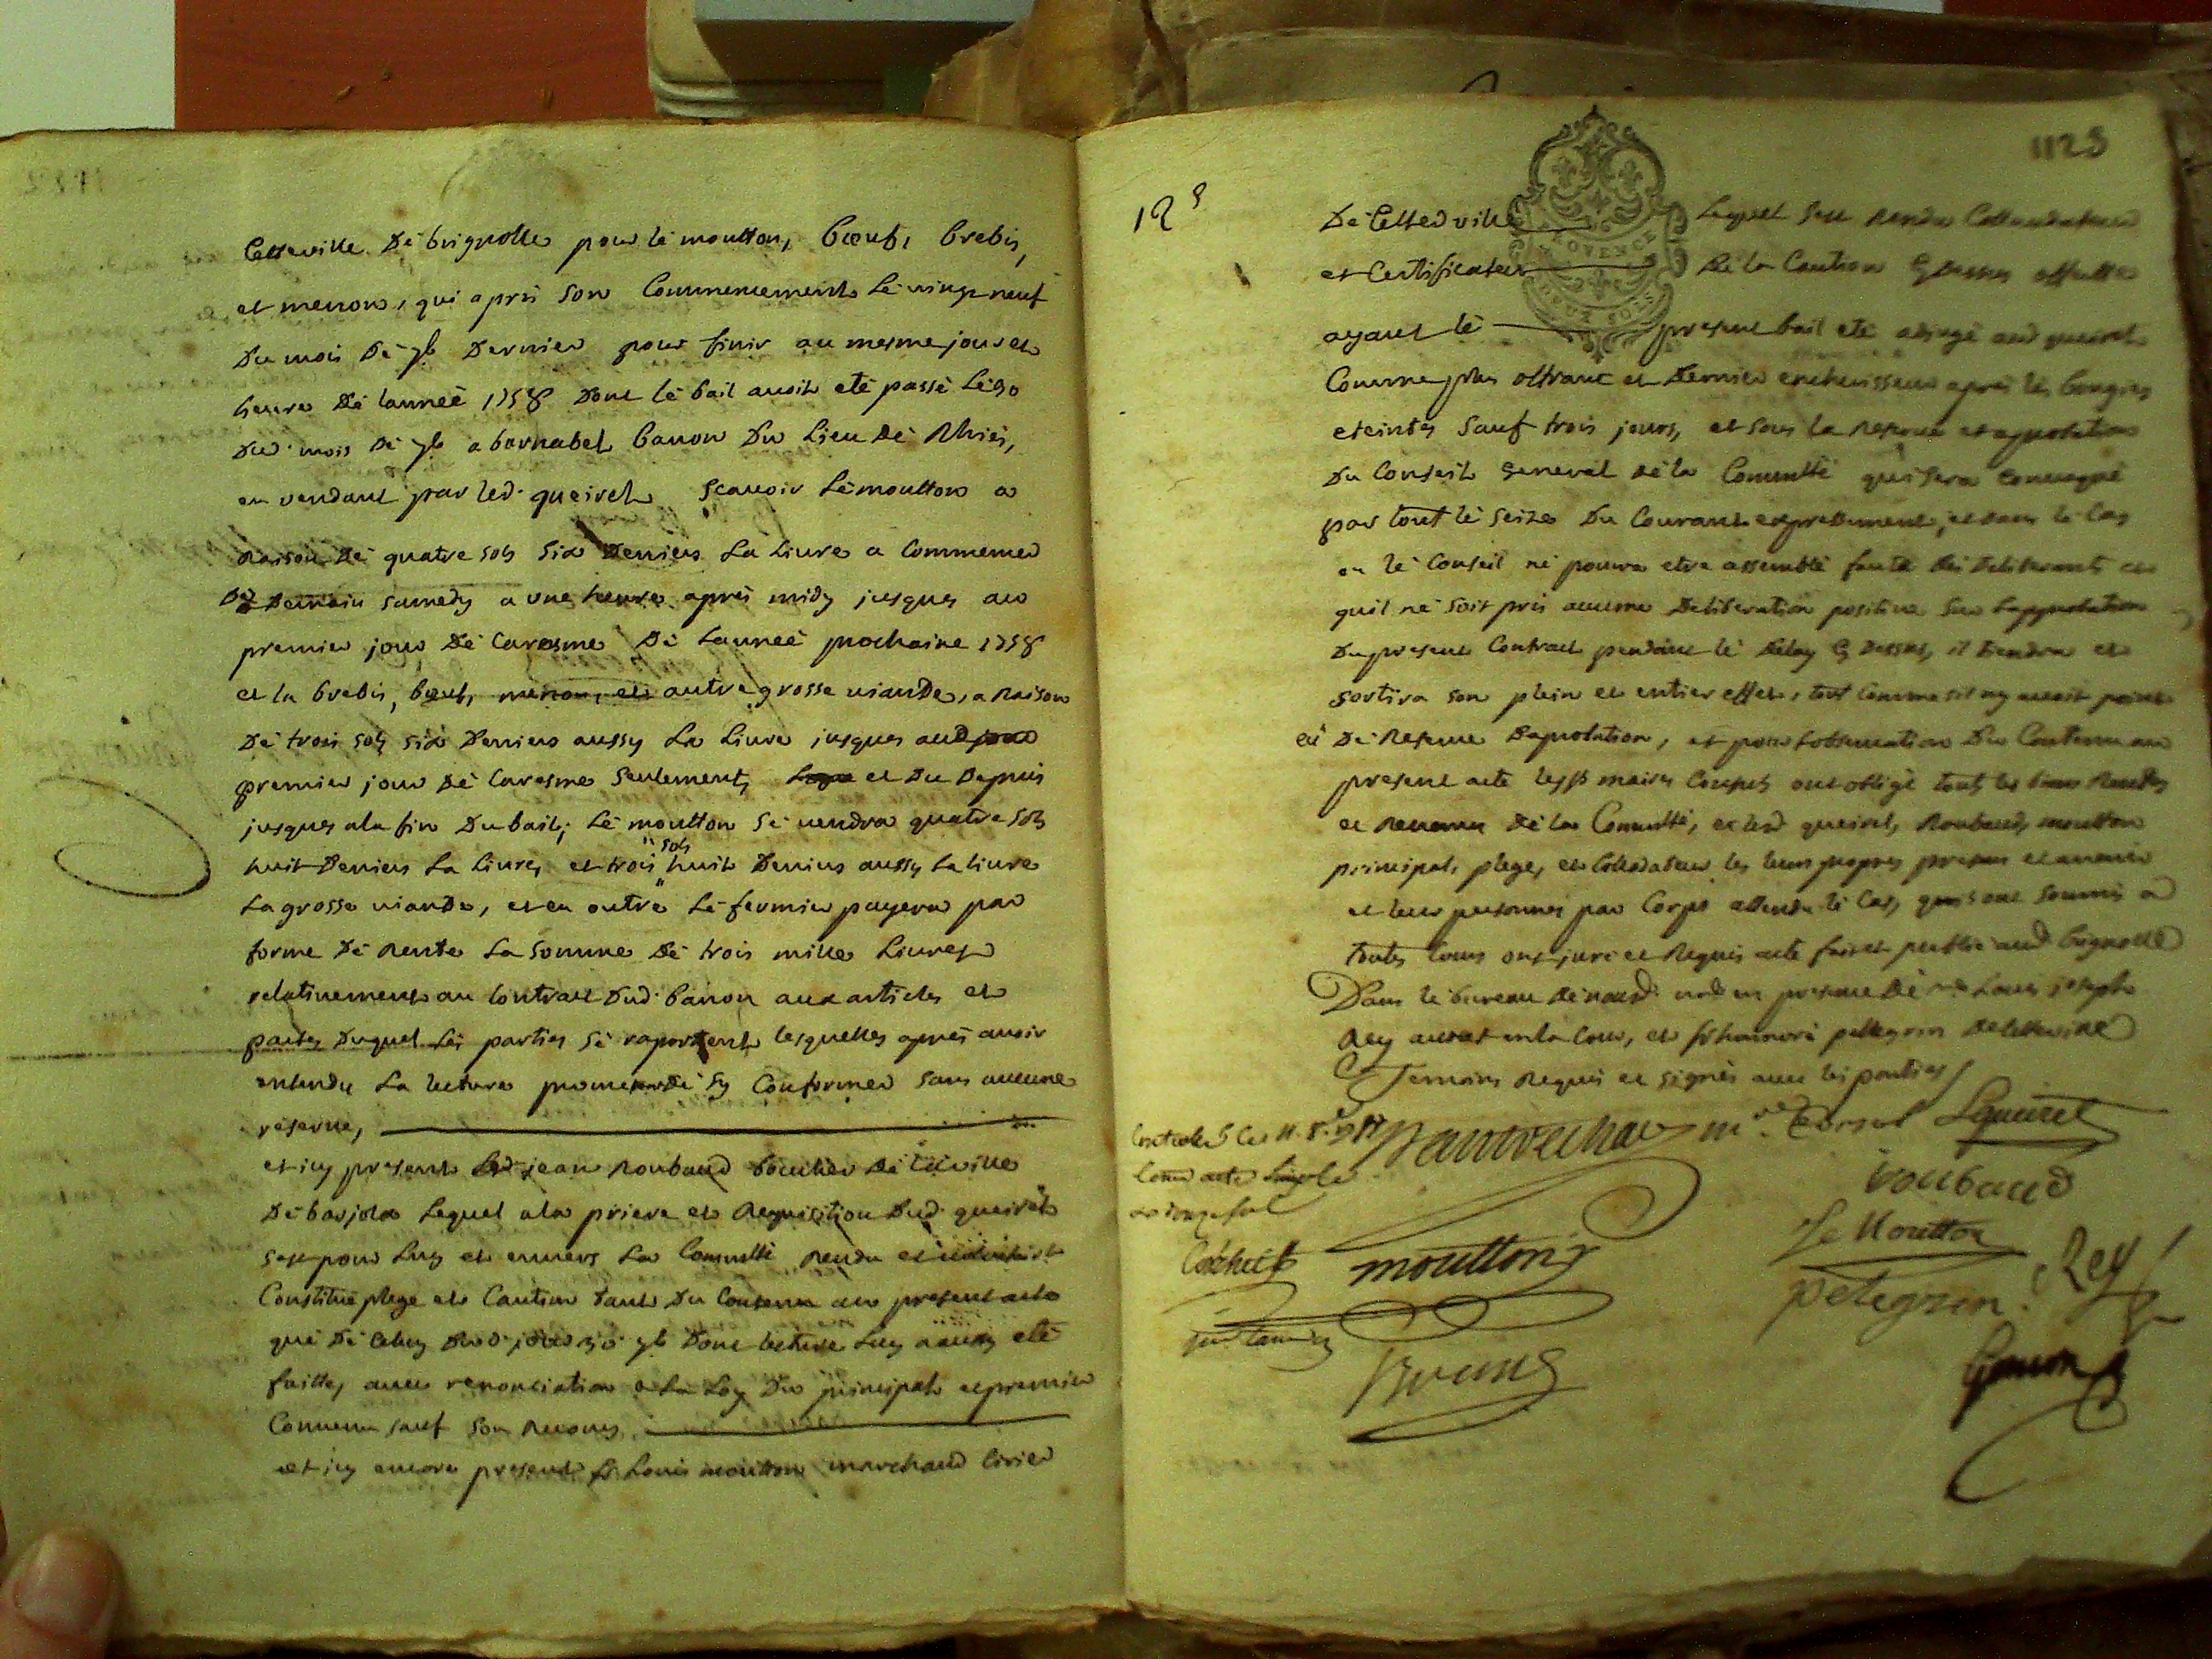 Cetteville De brignolle pour le moutton, bœuf, brebis,
et menon, qui a pris son Commencement Le vingt neuf
Du mois De 9b Dernier pour finir au mesme jour et
heure De l'année 1758 Dont le bail avoit eté passé Le 30
Dud. mois De 9b a barnabel banon Du Lieu De Rhiés,
en vendant par led. queirel Scavoir Le moutton a
Raison De quatre sols six Deniers La Livre a Commencer
Dez Demain samedy a une heure apres midy jusques au
premier jour De Caresme De Lannée prochaine 1758
et la brebis, bœuf, menon, et autre grosse viande, a Raison
De trois sols six Deniers aussy La Livre jusques aud
premier jour De Caresme seulement, et Du Depuis
jusques ala fin Du bail; Le moutton se vendra quatre sols
huit Deniers La Livre, et trois sols huit Deniers aussy La livre
La grosse viande, et en outre Le fermier payera par
forme De Rente La somme De trois mille Livres
relativement au Contract Dud. banon aux articles et
pactes Duquel Les parties se raportent lesquelles aprés avoir
entendu La lecture promettent De sy Conformer sans aucune
reserve,
et icy present jean Roubaud boucher De la ville
De barjols Lequel ala priere et Requisition Dud. queirel
sest pour Luy et envers La Comuntté Rendu et
Constitué plege et Caution tant Du Contenu au present acte
que De celuy Dud. jour 30 9b Dont lecture Luy a eté
faitte, avec renonciation a La Loy Du principal et premier
Convenu sauf son Recours,
et icy encore present Sr Louis moutton marchand cirier
1123
12 s
De Cetted ville Lequel sest rendu Collaudateur
et Certificateur De la Caution cy Dessus
PROVENCE
DEUX SOLS
ayant le present bail eté adjugé aud queirel
Comme plus offrant et Dernier encherisseur aprés les bougies
eteintes sauf trois jours, et sous la Reserve et aprobation
Du Conseil General De la Comuntté qui sera Convoqué
par tout le seize Du Courant expressement, et dans le Cas
ou le Conseil ne pourra etre assemblé faute De Deliberants et
quil ne soit pris aucune Deliberation positive sur Laprobation
Du present Contract pendant le Delay cy Dessus, il tiendra et
sortira son plein et entier effet, tout Comme sil ny avoit point
eü De Reserve Daprobation, et pour Lobservation Du Contenu au
present acte les Srs maires Consuls ont obligé tous les biens Rentes
et Revenus De la Comuntté, et les d queirel, Roubaud, moutton
principal, plege, et Collaudateur les leurs propres presents et avenir
et leurs personnes par Corps attendu le Cas, quils ont soumis a
toutes Cours ont juré et Requis acte fait et publié aud brignolle
Dans le bureau De nousd. en presence De me Louis joseph
Rey avocat en la Cour, et Sr honnoré pellegrin De Cetteville
Temoins Requis et signés avec les parties
Lqueirel
iroubaud
Le Moutton
moutton
pelegrin
Rey